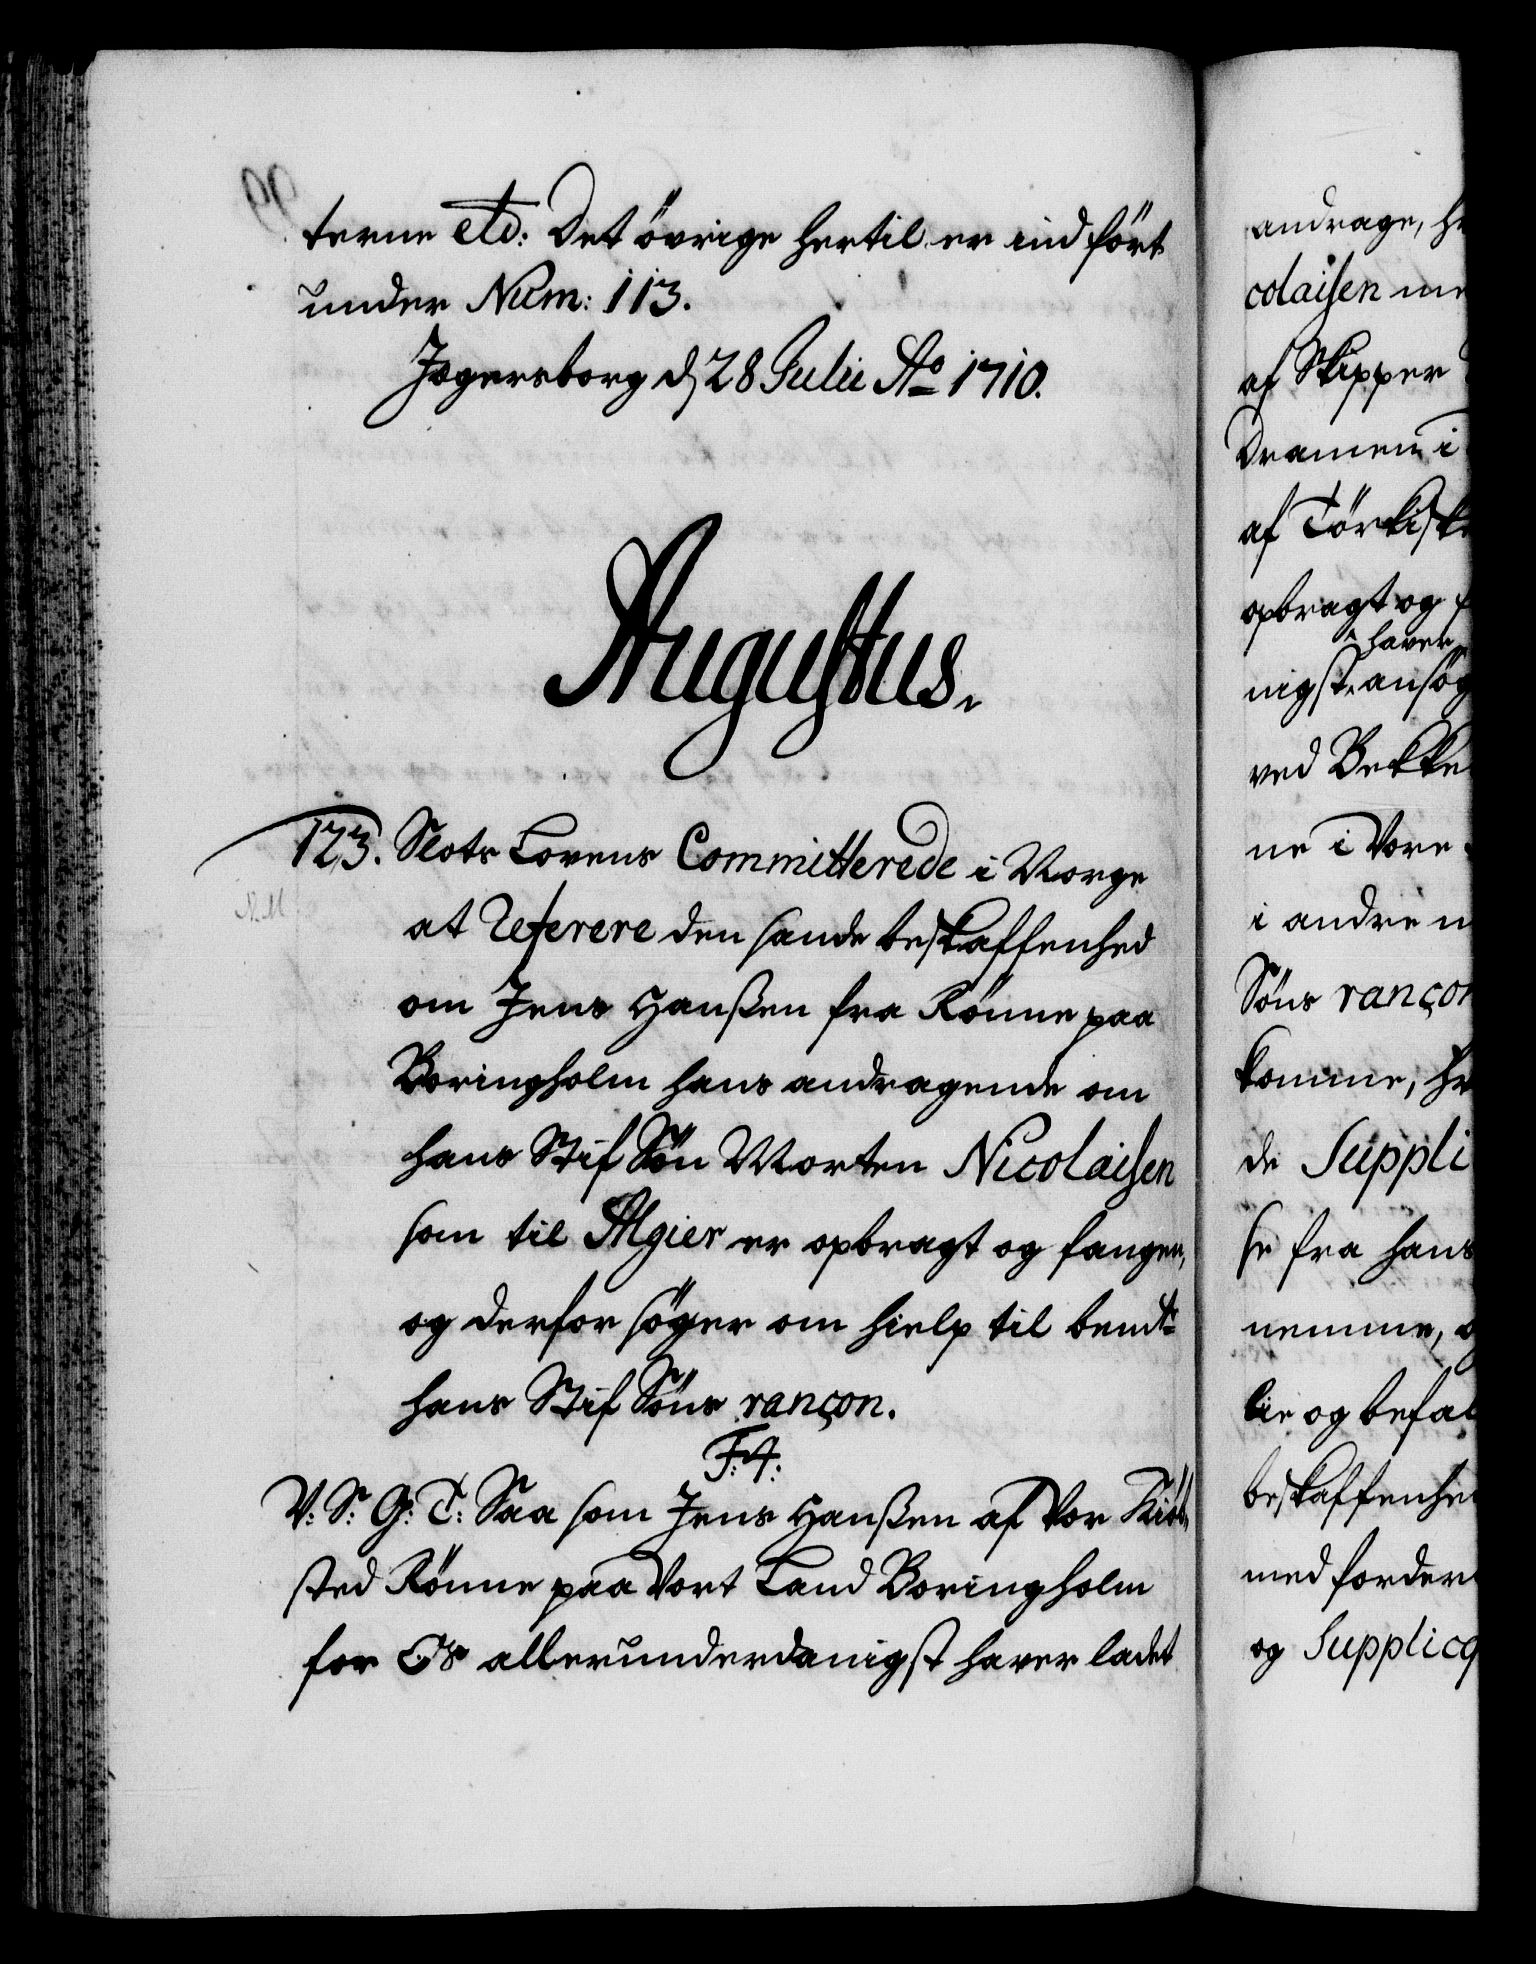 terne etc: Det övrige hertil er indfört
under Num: 113.
Jægersborg d 28 Julii Ao 1710.
Augustus.
123. Slots Lovens Committerede i Norge
at referere den sande beskaffenhed
om Jens Hanßen fra Rönne paa
Boringholm hans andragende om
hans Stif Sön Morten Nicolaisen
som til Algier er opbragt og fangen,
og derfor söger om hielp til bemte
hans Stif Söns rançon.
F: 4:
V: S: G: T: Saa som Jens Hanßen af Vor Kiöb,
sted Rönne paa Vort Land Boringholm
for Os allerunderdanigst haver ladet
andrage, h
colaisen me
af Skipper
Dramen i
af Törkisk
opbragt og f
haver
nigst ansög
ved Bekke
ne i Vore
i andre n
Söns rançon
komme, h
de Suppli
se fra hans
nemme, o
lie og befal
beskaffenhe
med forder
og Supplicq